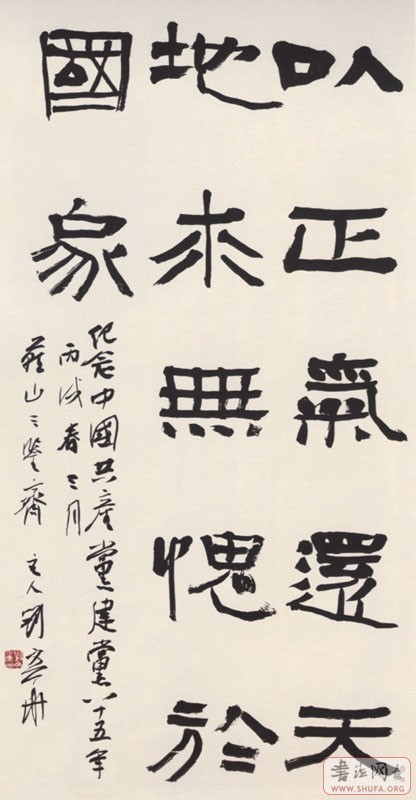 以正氣還天
地求無愧於
國家
紀念中國共產黨建黨八十五年
丙戌春三月
山三鑒齋主人劉
書法网
WWW.SHUFA.ORG